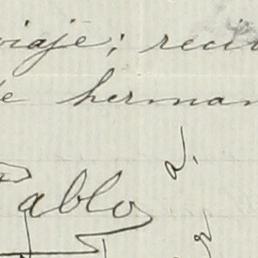 viaje; reci
e herman
Pablo